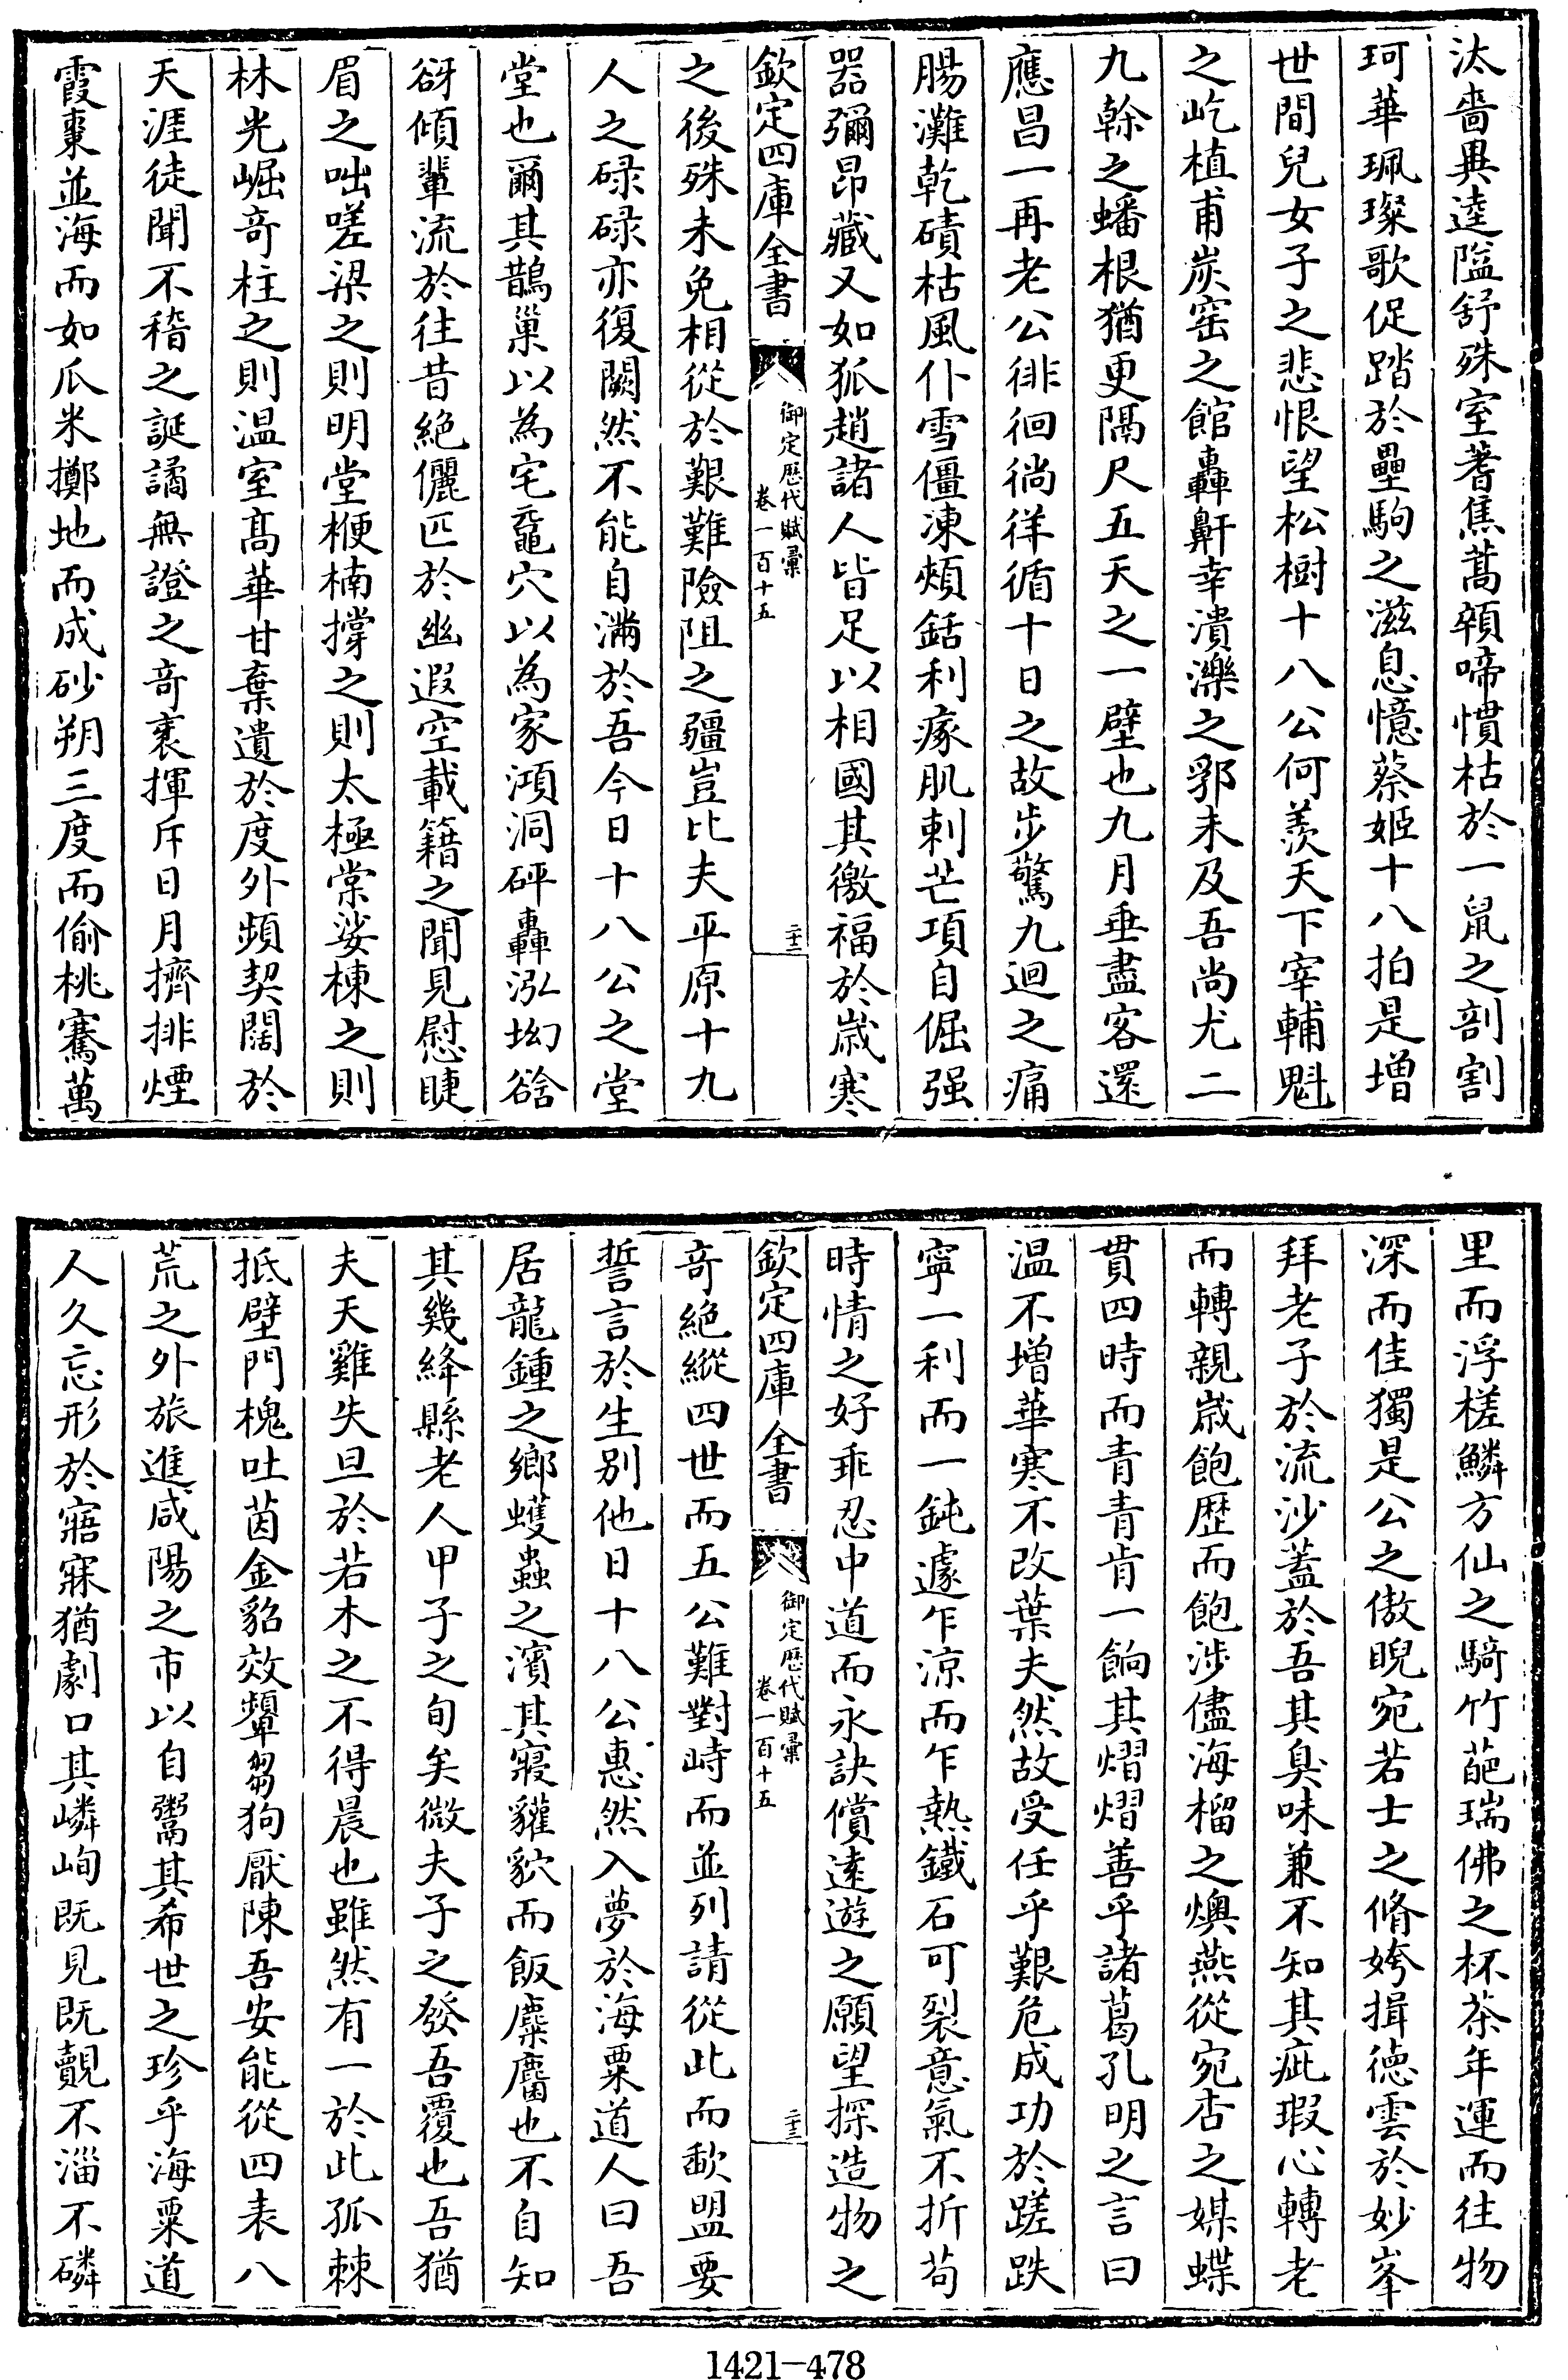 汰嗇異逵隘舒殊室著焦蒿顇啼慣枯於一鼠之剖割
珂華珮璨歌促踏於壘駒之滋息憶蔡姬十八拍是增
世間兒女子之悲恨望松樹十八公何羨天下宰輔魁
之屹植甫炭窑之館轟鼾幸潰濼之郛未及吾尚尤二
九榦之蟠根猶更隔尺五天之一壁也九月垂盡客還
應昌一再老公徘徊徜徉循十日之故步驚九迴之痛
腸灘乾磧枯風仆雪僵凍頰銛利瘃肌刺芒項自倔强
器彌昂藏又如狐趙諸人皆足以相國其徼福於嵗寒
欽定四庫全書
御定歴代賦彙
卷一百十五
二十二
之後殊未免相從於艱難險阻之疆豈比夫平原十九
人之碌碌亦復闕然不能自滿於吾今日十八公之堂
堂也爾其鵲巢以為宅竈穴以為家澒洞砰轟泓坳谽
谺傾輩流於往昔絶儷匹於幽遐空載籍之聞見慰睫
眉之咄嗟梁之則明堂楩楠撐之則太極棠娑棟之則
林光崛竒柱之則温室髙華甘棄遺於度外頻契闊於
天涯徒聞不稽之誕譎無證之竒袤揮斥日月擠排煙
霞棗並海而如瓜米擲地而成砂朔三度而偷桃騫萬
里而浮槎鱗方仙之騎竹葩瑞佛之杯茶年運而往物
深而佳獨是公之傲睨宛若士之脩姱揖徳雲於妙峯
拜老子於流沙蓋於吾其臭味兼不知其疵瑕心轉老
而轉親嵗飽歴而飽涉儘海榴之燠燕從宛杏之媒蝶
貫四時而青青肯一餉其熠熠善乎諸葛孔明之言曰
温不增華寒不改葉夫然故受任乎艱危成功於蹉跌
寧一利而一鈍遽乍涼而乍熱鐵石可裂意氣不折苟
時情之好乖忍中道而永訣償遠遊之願望探造物之
欽定四庫全書
御定歴代賦彙
卷一百十五
二十三
竒絶縱四世而五公難對峙而並列請從此而歃盟要
誓言於生别他日十八公惠然入夢於海粟道人曰吾
居龍鍾之鄉蠖蟲之濱其寢貛貁而飯麋麕也不自知
其幾絳縣老人甲子之旬矣微夫子之發吾覆也吾猶
夫天雞失旦於若木之不得晨也雖然有一於此孤棘
抵壁門槐吐茵金貂效顰芻狗厭陳吾安能從四表八
荒之外旅進咸陽之市以自鬻其希世之珍乎海粟道
人久忘形於寤寐猶劇口其嶙峋既見既覿不淄不磷
1421-478